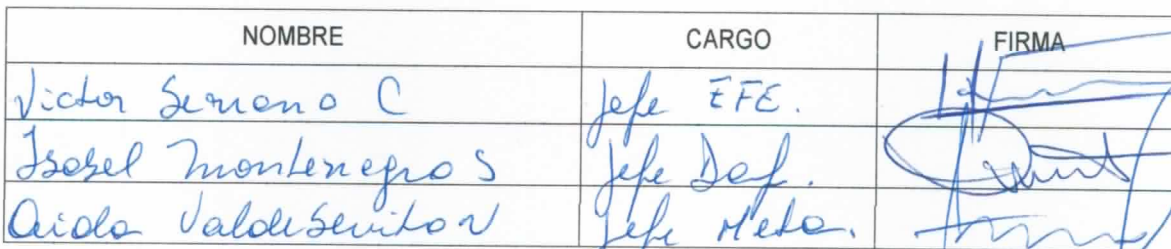 NOMBRE CARGO FIRMA
Victor Serrano C Jefe EFE.
Isabel Montenegro S Jefe Daf.
Aida Valdebenito N Jefe Meta.